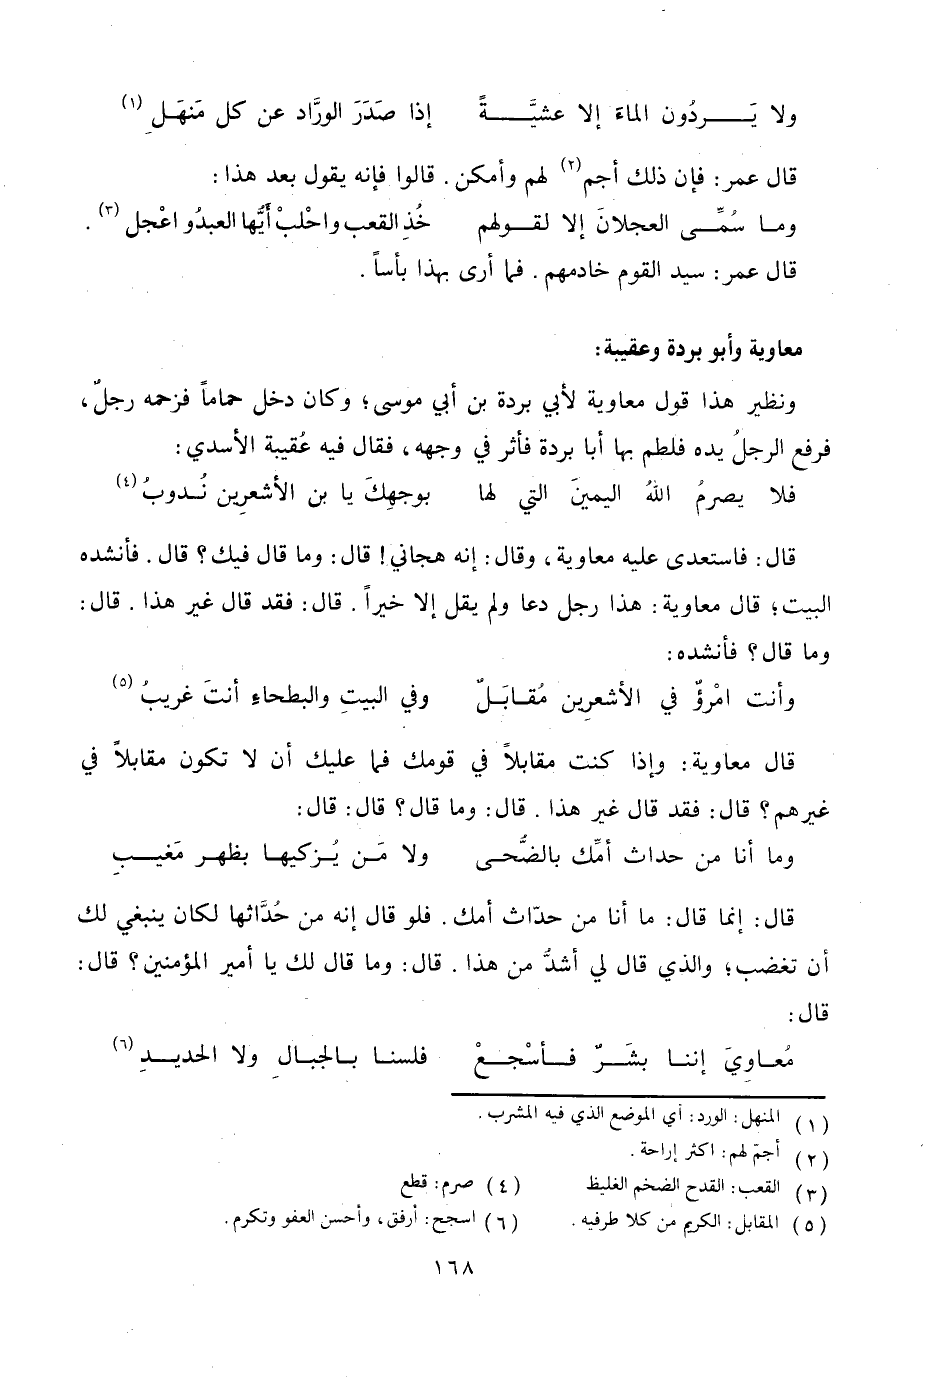 ولا يَـــرِدُون الماءَ إلا عشيَّـــةً    إذا صدَرَ الورَّاد عن كل مَنهَلِ (١)
قال عمر: فإن ذلك أجم(٢) لهم وأمكن. قالوا فإنه يقول بعد هذا:
وما سُمِّـي العجلانَ إلا لقـولهم    خُذِ القعب واحْلبْ أَيُّها العبدُو اعْجل (٣).
قال عمر: سيد القوم خادمهم. فما أرى بهذا بأساً.
معاوية وأبو بردة وعقيبة:
ونظير هذا قول معاوية لأبي بردة بن أبي موسى؛ وكان دخل حماماً فزحمه رجلٌ،
فرفع الرجلُ يده فلطم بها أبا بردة فأثر في وجهه، فقال فيه عُقيبة الأسدي:
فلا يصرمُ اللهُ اليمينَ التي لها    بوجهِكَ يا بن الأشعرِين نُـدوبُ (٤)
قال: فاستعدى عليه معاوية، وقال: إنه هجاني! قال: وما قال فيك؟ قال. فأنشده
البيت؛ قال معاوية: هذا رجل دعا ولم يقل إلا خيراً. قال: فقد قال غير هذا. قال:
وما قال؟ فأنشده:
وأنت امْرؤٌ في الأشعرِين مُقـابَـلٌ    وفي البيتِ والبطحاءِ أنتَ غريبُ (٥)
قال معاوية: وإذا كنت مقابلاً في قومك فما عليك أن لا تكون مقابلاً في
غيرهم؟ قال: فقد قال غير هذا. قال: وما قال؟ قال: قال:
وما أنا من حداث أمِّك بالضُّحى    ولا مَـن يُـزكيهـا بظهـر مَغيـبِ
قال: إنما قال: ما أنا من حدّاث أمك. فلو قال إنه من حُدَّاثها لكان ينبغي لك
أن تغضب؛ والذي قال لي أشدُّ من هذا. قال: وما قال لك يا أمير المؤمنين؟ قال:
قال:
مُعـاويَ إننـا بشَـرٌ فـأسْجـحْ    فلسنـا بـالجبـالِ ولا الحديـدِ (٦)
(١) المنهل: الورد: أي الموضع الذي فيه المشرب.
(٢) أجمّ لهم: اكثر إراحة.
(٣) القعب: القدح الضخم الغليظ    (٤) صرم: قطع
(٥) المقابل: الكريم من كلا طرفيه.    (٦) اسجح: أرفق، وأحسن العفو وتكرم.
١٦٨